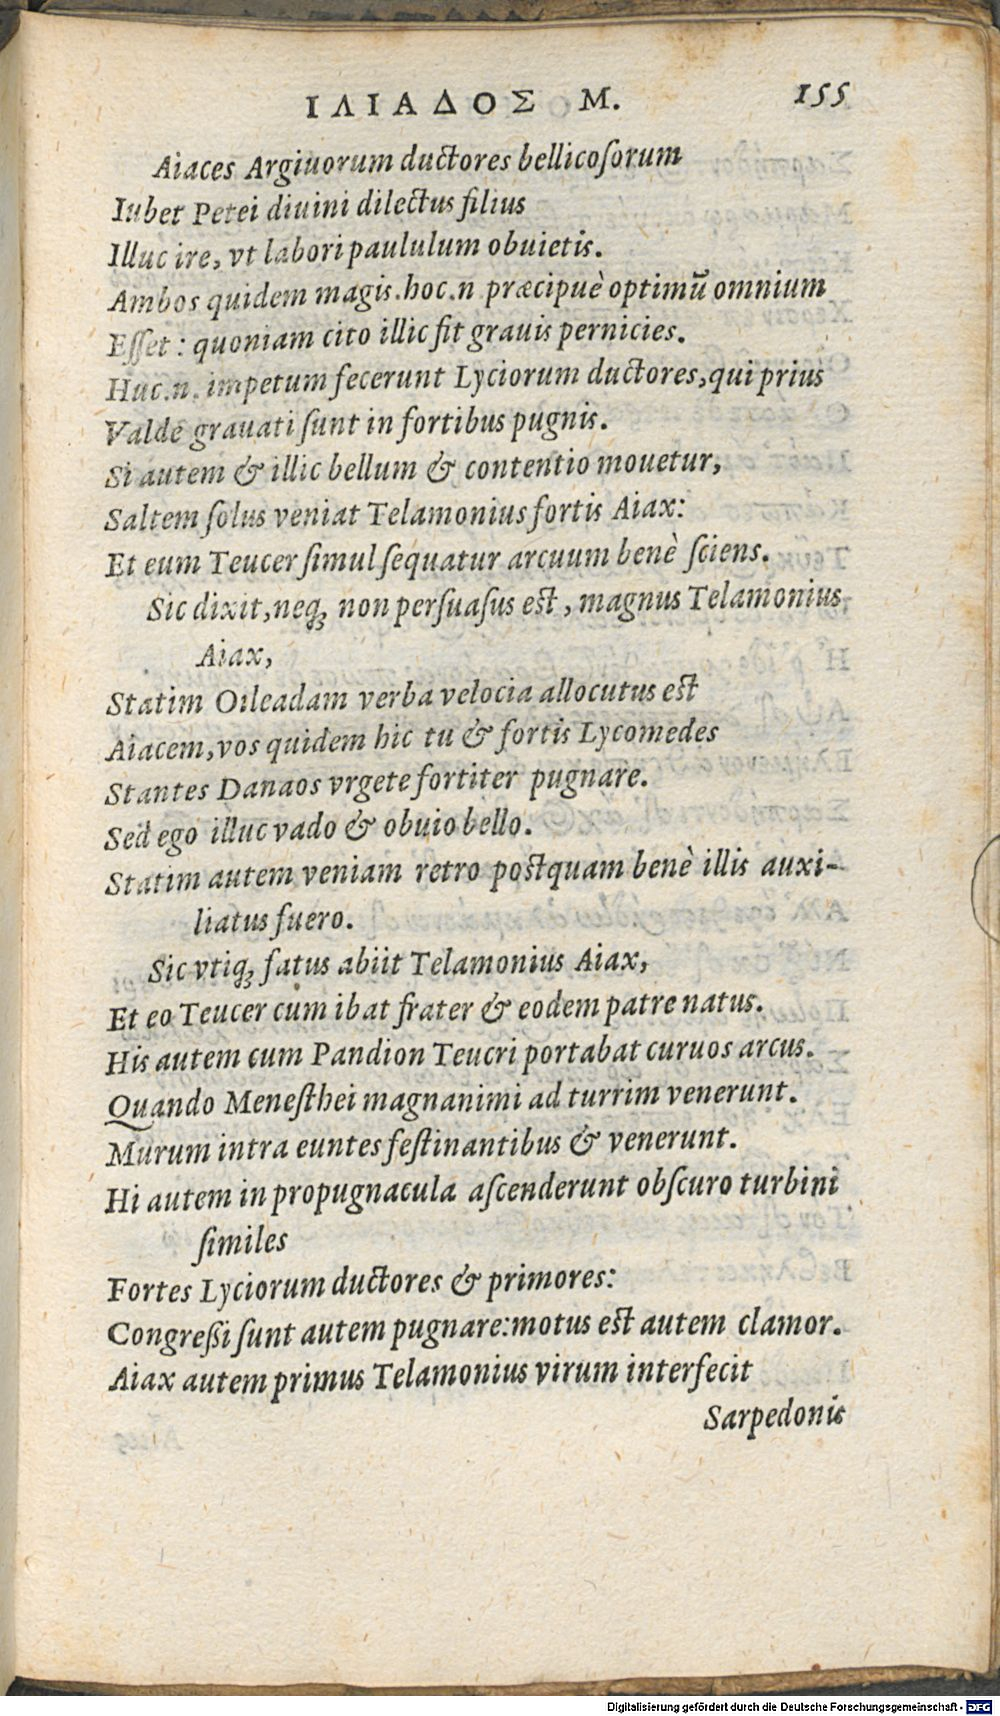 ΙΛΙΑΔΟΣ Μ. 155
Aiaces Argiuorum ductores bellicoſorum
Iubet Petei diuini dilectus filius
Illuc ire, vt labori paululum obuietis.
Ambos quidem magis.hoc.n præcipuè optimū omnium
Eſſet : quoniam cito illic fit grauis pernicies.
Huc.n. impetum fecerunt Lyciorum ductores,qui prius
Valde grauati ſunt in fortibus pugnis.
Si autem & illic bellum & contentio mouetur,
Saltem ſolus veniat Telamonius fortis Aiax:
Et eum Teucer ſimul ſequatur arcuum benè ſciens.
Sic dixit,neq; non perſuaſus est, magnus Telamonius
Aiax,
Statim Oileadam verba velocia allocutus est
Aiacem,vos quidem hic tu & fortis Lycomedes
Stantes Danaos vrgete fortiter pugnare.
Sed ego illuc vado & obuio bello.
Statim autem veniam retro postquam benè illis auxi-
liatus fuero.
Sic vtiq; fatus abiit Telamonius Aiax,
Et eo Teucer cum ibat frater & eodem patre natus.
His autem cum Pandion Teucri portabat curuos arcus.
Quando Meneſthei magnanimi ad turrim venerunt.
Murum intra euntes feſtinantibus & venerunt.
Hi autem in propugnacula aſcenderunt obſcuro turbini
ſimiles
Fortes Lyciorum ductores & primores:
Congreßi ſunt autem pugnare:motus est autem clamor.
Aiax autem primus Telamonius virum interfecit
Sarpedonis
Digitalisierung gefördert durch die Deutsche Forschungsgemeinschaft - DFG